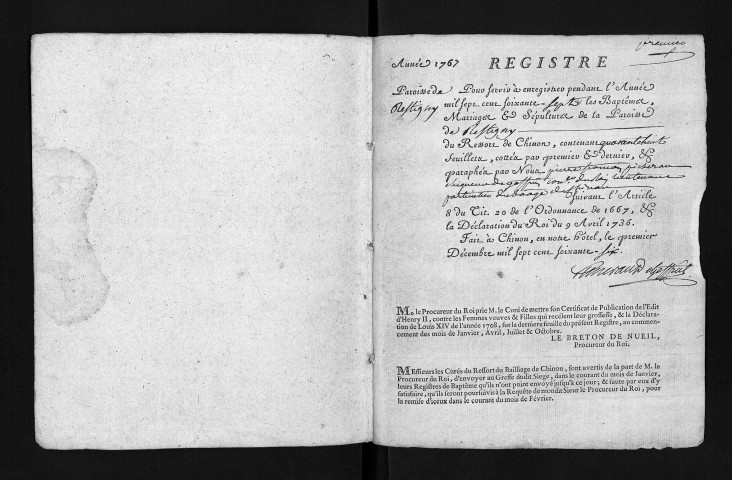 premier
Année 1767 REGISTRE
Paroisse de
Restigny
Pour servir à enregistrer pendant l'Année
mil sept cent soixante-sept les Baptêmes,
Mariages & Sépultures de la Paroisse
de Restigny
du Ressort de Chinon, contenant quarante huit
feuillets, cottés par premier & dernier, &
paraphés par Nous pierre
Seigneur de lieutenant
particulier
suivant l'Article
8 du Tit. 20 de l'Ordonnance de 1667, &
la Déclaration du Roi du 9 Avril 1736.
Fait à Chinon, en notre hôtel, le premier
Décembre mil sept cent soixante-six.
M. le Procureur du Roi prie M. le Curé de mettre son Certificat de Publication de l'Edit
d'Henry II, contre les Femmes veuves & Filles qui recélent leur grossesse, & la Déclara-
tion de Louis XIV de l'année 1708, sur la derniere feuille du présent Registre, au commen-
cement des mois de Janvier, Avril, Juillet & Octobre.
LE BRETON DE NUEIL,
Procureur du Roi.
Messieurs les Curés du Ressort du Bailliage de Chinon, sont avertis de la part de M. le
Procureur du Roi, d'envoyer au Greffe dudit Siege, dans le courant du mois de Janvier,
leurs Registres de Baptême qu'ils n'ont point envoyé jusqu'à ce jour; & faute par eux d'y
satisfaire, qu'ils seront poursuivis à la Requête de mondit Sieur le Procureur du Roi, pour
la remise d'iceux dans le courant du mois de Février.